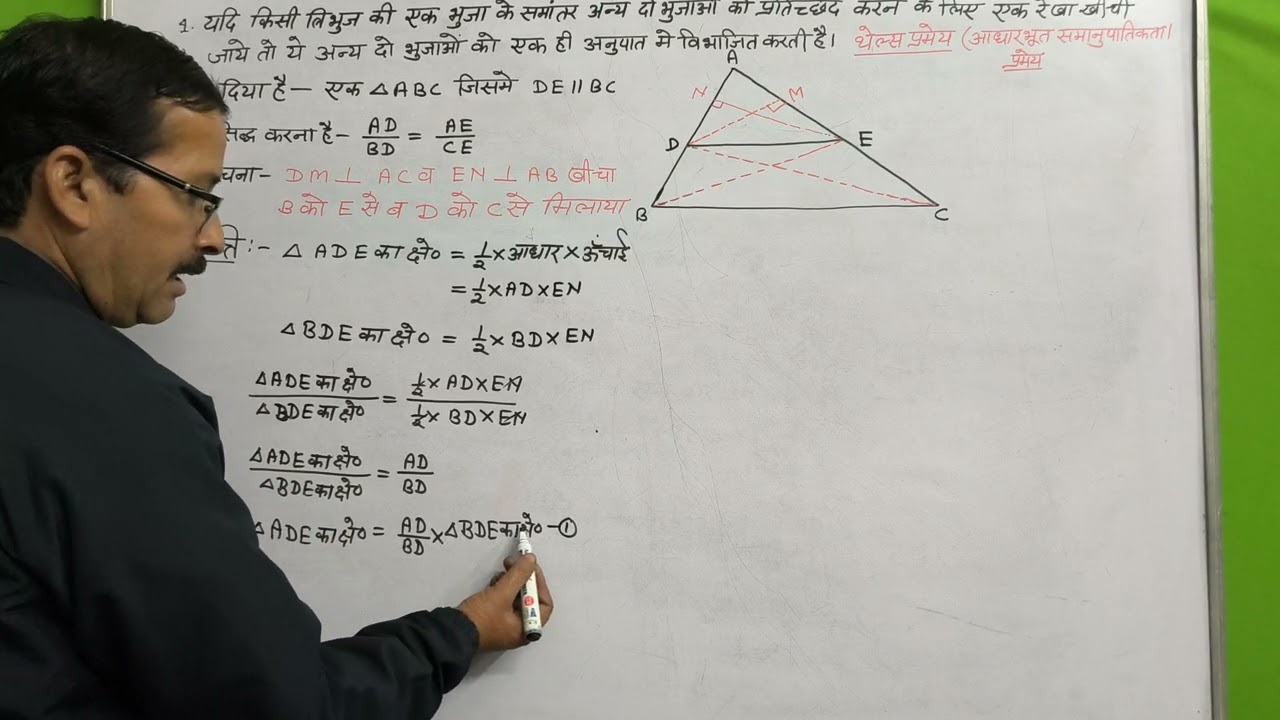 1. यदि किसी त्रिभुज की एक भुजा के समांतर अन्य दो भुजाओं को प्रतिच्छेद करने के लिए एक रेखा खींची
जाये तो ये अन्य दो भुजाओं को एक ही अनुपात मे विभाजित करती है। थेल्स प्रमेय (आधारभूत समानुपातिकता।
प्रमेय
दिया है— एक △ABC जिसमे DE॥BC
सिद्ध करना है- AD/BD = AE/CE
चना- DM⊥AC व EN⊥AB खींचा
B को E से व D को C से मिलाया
A
N
M
D
E
B
C
ति :- △ADE का क्षे० = 1/2 × आधार × ऊँचाई
= 1/2 × AD × EN
△BDE का क्षे० = 1/2 × BD × EN
△ADE का क्षे०/△BDE का क्षे० = 1/2 × AD × EN / 1/2 × BD × EN
△ADE का क्षे०/△BDE का क्षे० = AD/BD
△ADE का क्षे० = AD/BD × △BDE का क्षे० -①